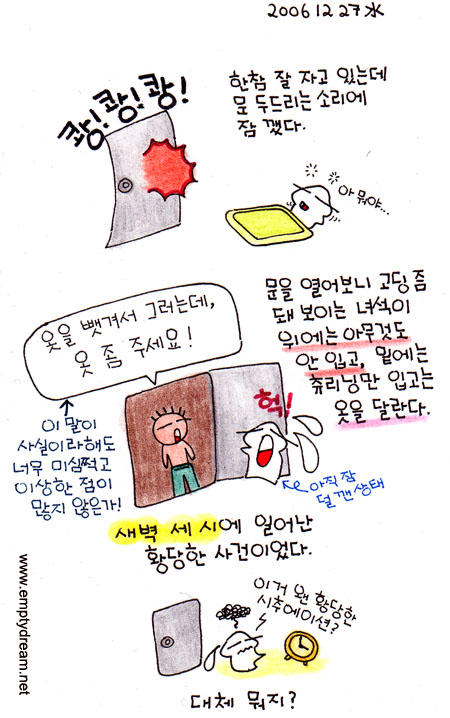 2006 12 27 水
쾅!쾅!쾅!
한참 잘 자고 있는데
문 두드리는 소리에
잠 깼다.
아 뭐야...
문을 열어보니 고딩 쯤
돼 보이는 녀석이
위에는 아무것도
안 입고, 밑에는
츄리닝만 입고는
옷을 달란다.
옷을 뺏겨서 그러는데,
옷 좀 주세요!
헉!
이 말이
사실이라해도
너무 미심쩍고
이상한 점이
많지 않은가!
아직 잠
덜 깬 상태
새벽 세 시에 일어난
황당한 사건이었다.
이거 왠 황당한
시츄에이션?
대체 뭐지?
www.emptydream.net